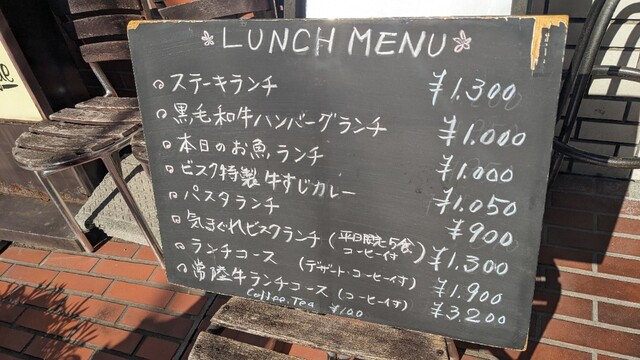 LUNCH MENU
ステーキランチ ¥1,300
黒毛和牛ハンバーグランチ ¥1,000
本日のお魚ランチ ¥1,000
ビスク特製牛すじカレー ¥1,050
パスタランチ ¥900
気まぐれビスクランチ (平日限定5食 コーヒー付) ¥1,300
ランチコース (デザート・コーヒー付) ¥1,900
常陸牛ランチコース (コーヒー付) ¥3,200
Coffee.Tea ¥100